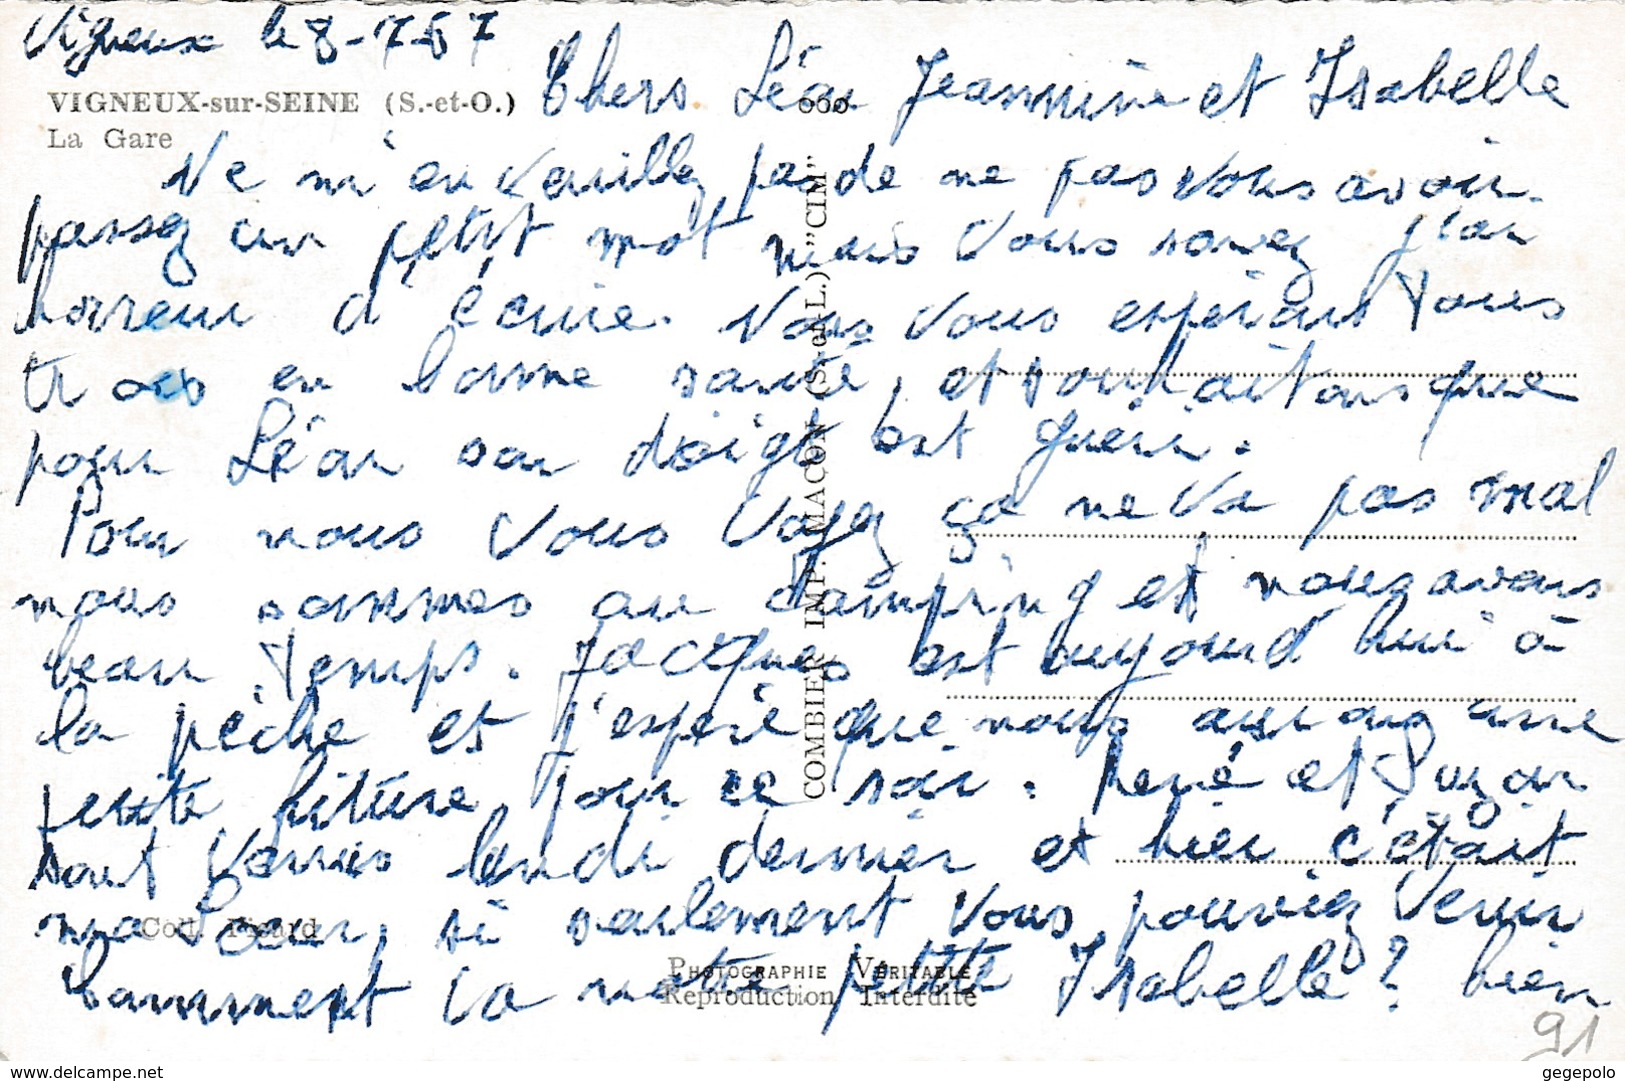 Vigneux le 8-7-57
VIGNEUX-sur-SEINE (S.-et-O.)
La Gare
Chers Léon Jeannine et Isabelle
Ne m'en veuillez pas de ne pas vous avoir
passez un petit mot mais vous savez j'ai
horreur d'écrire. Nous vous esperons tous
trois en bonne santé, et souhaitons que
pour Léon son doigt est gueri.
Pour nous vous voyez ça ne va pas mal
nous sommes au camping et nous avons
beau temps. Jacques est aujourd'hui à
la pêche et j'espère que nous aurons une
petite friture pour ce soir. René et Suzon
sont venus lundi dernier et hier c'était
ma soeur, si seulement vous pouviez venir
Comment va notre petite Isabelle? bien
COMBIER IMP. MACON (S.-et-L.) "CIM"
Coll. Picard
PHOTOGRAPHIE VÉRITABLE
Reproduction Interdite
91
www.delcampe.net
gegepolo